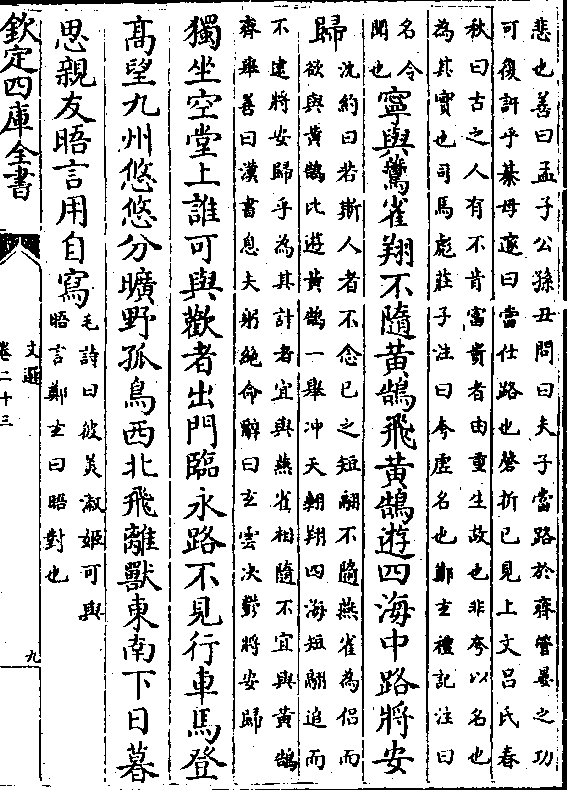 悲也善曰孟子公孫丑問曰夫子當路於齊管晏之功
可復許乎綦母邃曰當仕路也磬折已見上文吕氏春
秋曰古之人有不肯富貴者由重生故也非夸以名也
為其實也司馬彪莊子注曰夸虛名也鄭玄禮記注曰
名令
聞也
寧與鷰雀翔不隨黃鵠飛黃鵠遊四海中路將安
歸
沈約曰若斯人者不念已之短翮不隨燕雀為侶而
欲與黃鵠比遊黃鵠一舉冲天翱翔四海短翮追而
不逮將安歸乎為其計者宜與燕雀相隨不宜與黃鵠
齊舉善曰漢書息夫躬絶命辭曰玄雲泱鬱將安歸
獨坐空堂上誰可與歡者出門臨永路不見行車馬登
高望九州悠悠分曠野孤鳥西北飛離獸東南下日暮
思親友晤言用自寫
毛詩曰彼美淑姬可與
晤言鄭玄曰晤對也
欽定四庫全書
文選
卷二十三
九